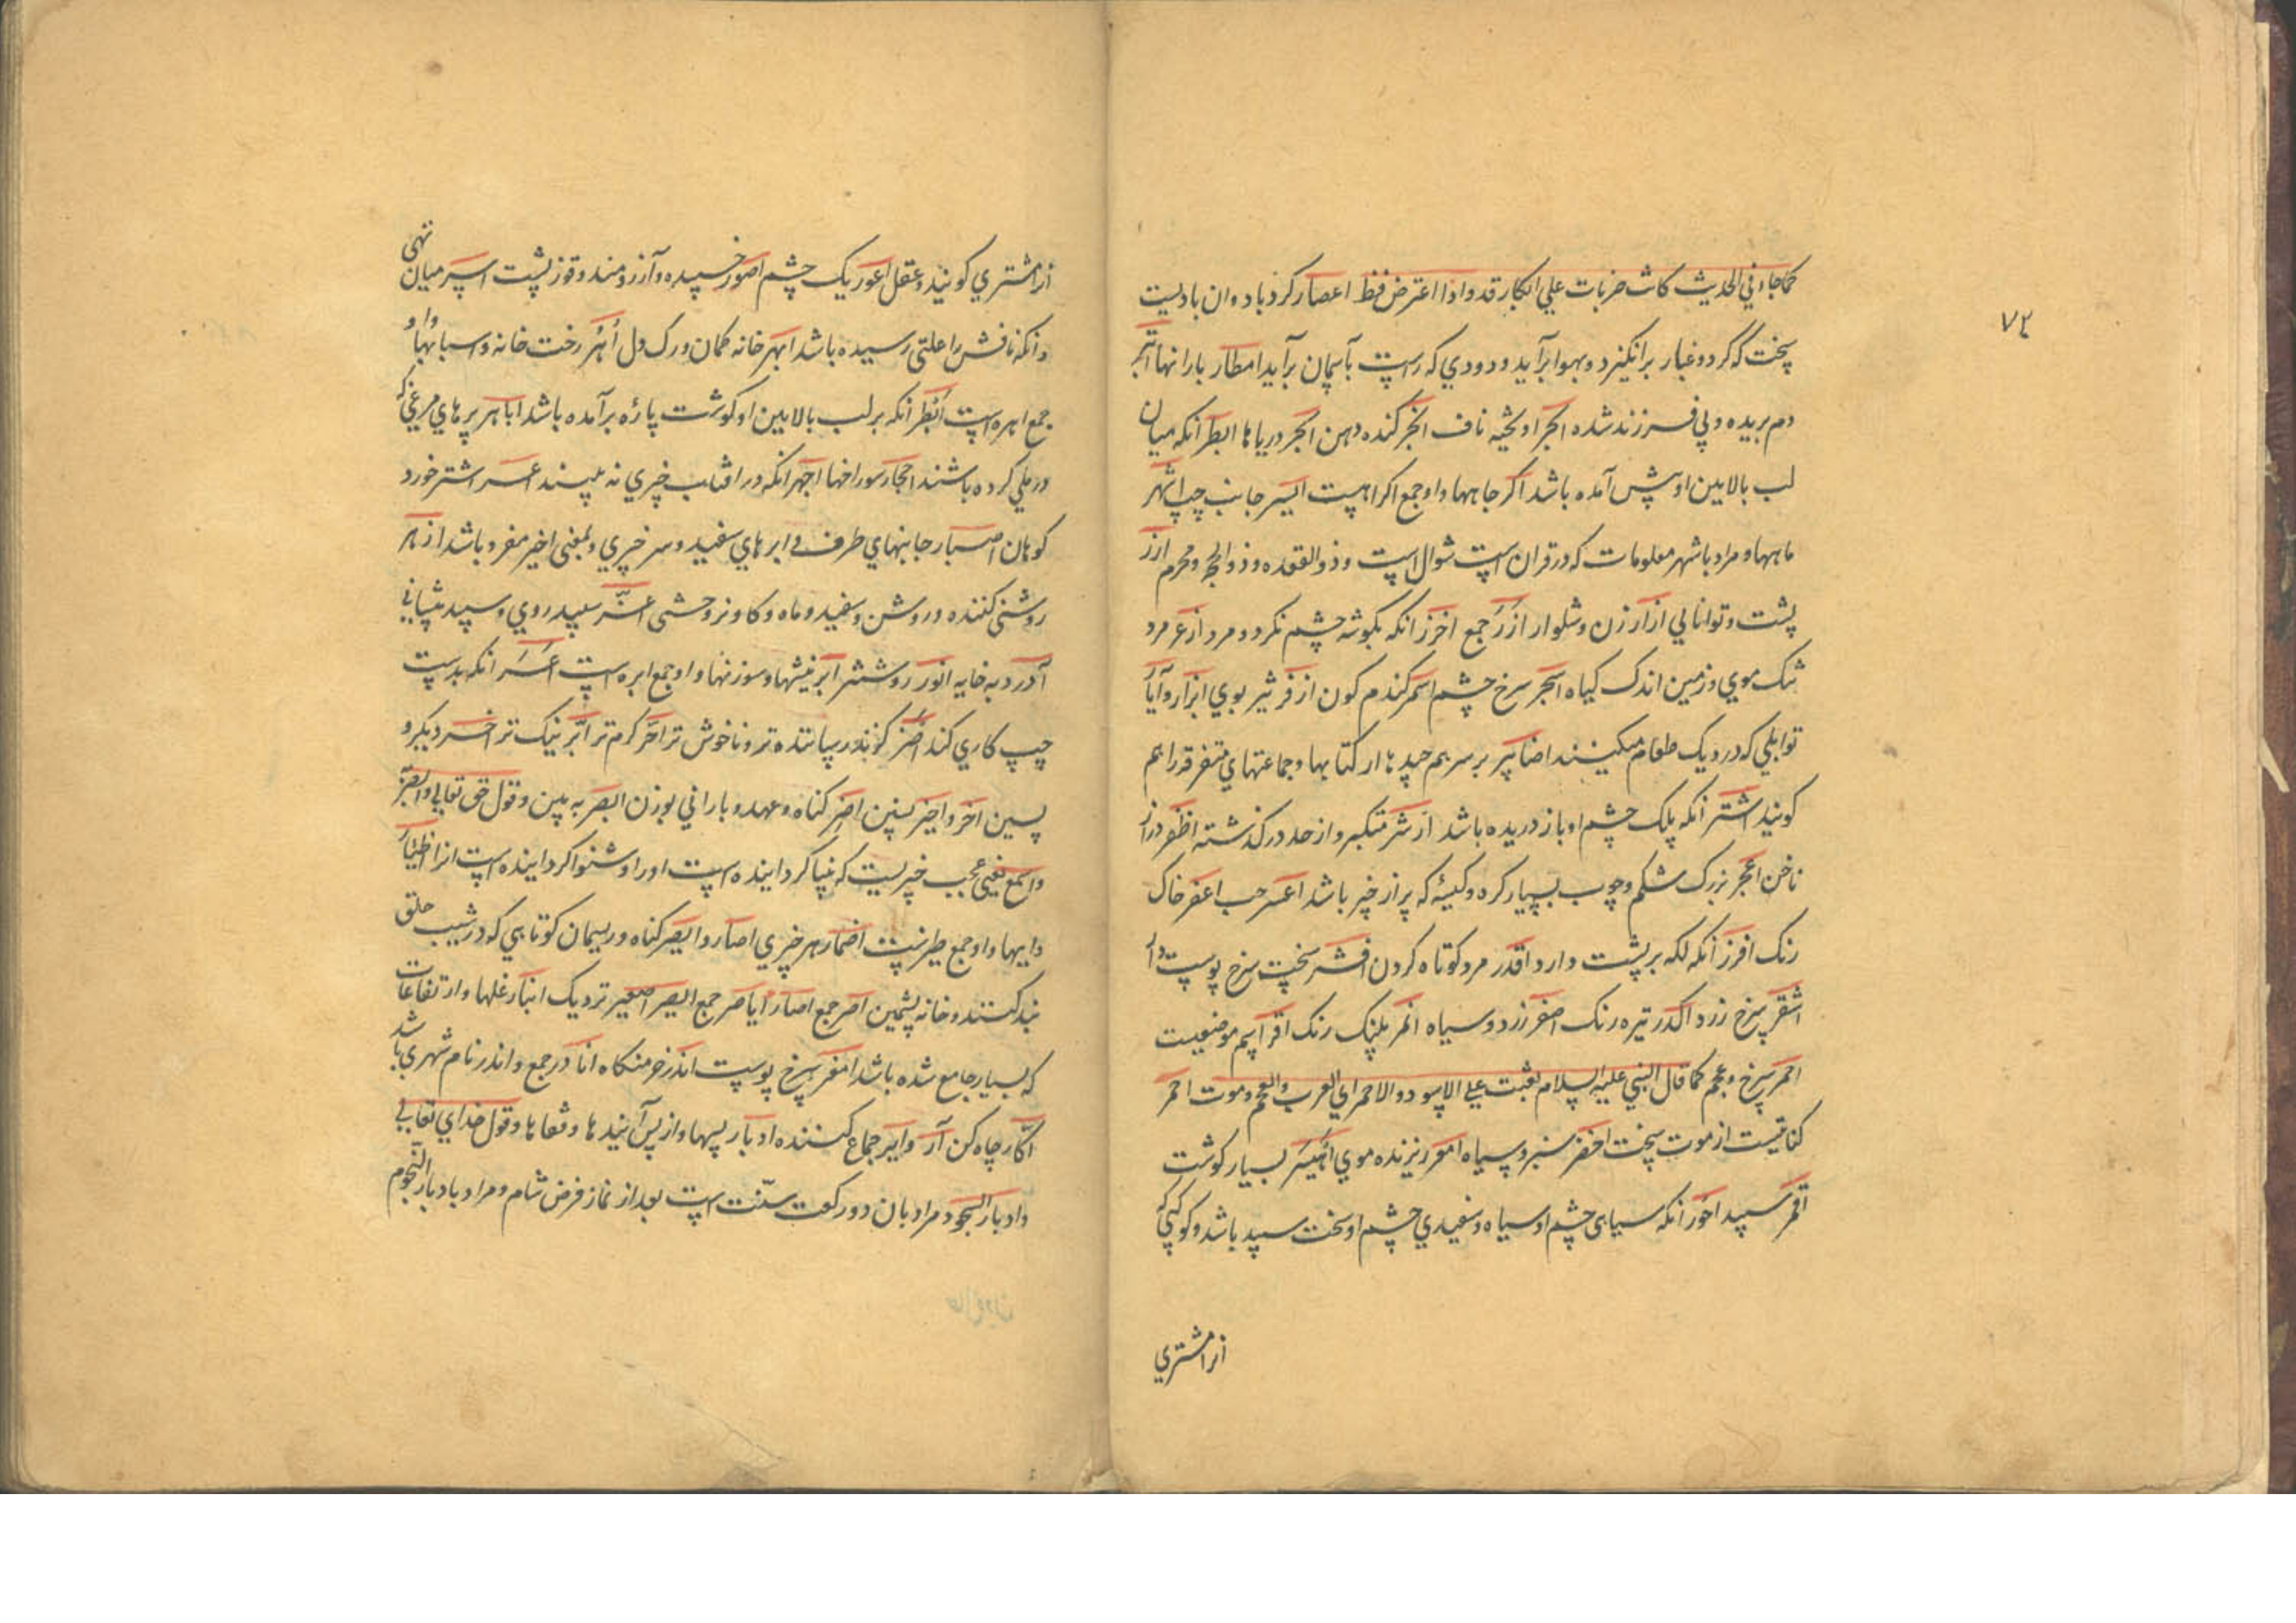 ۷۲
کما جاء في الحدیث کانت ضربات علي ابکار قد واذا اعترض فقط اعصار کردباد و ان بادیست
سخت که کرد و غبار برانکیزد و بهوا برآید و دودي که راست بآسمان برآید امطار بارانها ابتر
دم بریده و بي فرزند شده ابجر اویخته ناف ابخر کنده دهن ابحر دریاها ابظر انکه میان
لب بالایین او پیش آمده باشد اکر جاهها و او جمع اکرا هست ایسر جانب چپ اشهر
ماهها و مراد باشهر معلومات که در قران است شوال است و ذوالقعده و ذوالحجه و محرم ازر
پشت و توانایي ازار زن و شلوار ازر جمع اخزر انکه بکوشه چشم نکرد و مرد ازعر مرد
تنک موي و زمین اندک کیاه اسجر سرخ چشم اسمر کندم کون ازفر تیز بوي ابزار و آبازیر
توابلي که در دیک طعام میکنند اضابیر بر سر هم چیدها از کتابها و جماعتهاي متفرقه را هم
کویند اشتر انکه پلک چشم او باز دریده باشد اشر متکبر و از حد درکذشته اظفر دراز
ناخن اعجر بزرک شکم و چوب بسیار کره و کیسۀ که پر از چیز باشد اعسر چپ اعفر خاک
رنک افزر انکه لکه بر پشت دارد اقدر مرد کوتاه کردن اقشر سخت سرخ پوست دار
اشقر سرخ زرد اکدر تیره رنک اصفر زرد و سیاه انمر پلنک رنک اقر اسم موضعیست
احمر سرخ و عجم کما قال النبي علیه السلام بعثت علي الاسود والاحمر اي العرب والعجم و موت احمر
کنایتست از موت سخت اخضر سبز و سیاه امعر ریزنده موي اهیسر بسیار کوشت
اقمر سپید احور انکه سیاهی چشم او سیاه و سفیدي چشم او سخت سپید باشد و کوکبي که
انرا مشتري
انرا مشتري کویند و عقل اعور یک چشم اصور خسپیده و آرزومند و قوز پشت اسپر میان تهی
و انکه نافش را علتی رسیده باشد ابهر خانه کمان و رک دل اهر رخت خانه و اسبابها و او
جمع اهره است ابظر انکه بر لب بالایین او کوشت پاره برآمده باشد اباهر پرهاي مرغي که
در ملي کرده باشند اجحار سوراخها اجهر انکه در افتاب چیزي نه بیند اعسر اشتر خورد
کوهان اصبار جانبهاي طرف و ابرهاي سفید و سر چیزي و بمعنی اخیر مفرد باشد ازهر
روشنی کننده و روشن و سفید و ماه و کاو نر وحشی اغر سپید روي و سپید پیشاني
آدر دبه خایه انور روشنتر ابر نیشها و سوزنها و او جمع ابره است اعسر انکه بدست
چپ کاري کند اضر کزند رساننده تر و ناخوش تر احر کرم تر ابر نیک تر اخر دیکر و
پسین اخر و اخیر پسین اصر کناه و عهد و باراني بوزن ابصر به بین و قول حق تعالي و ابصر
و اسمع یعنی عجب چیزیست که بینا کردانیده است او را و شنوا کردانیده است انرا اظئار
دایها و او جمع ظئر است اضمار هر چیزي اصار و ایصر کناه و ریسمان کوتاهي که در شیب حلق
بند کنند و خانه پشمین اصر جمع اصار ایاصر جمع ایصر اصغیر نزدیک انبار غلها و ارتفاعات
که بسیار جامع شده باشد امغر سرخ پوست اندر خرمنکاه انادر جمع و اندر نام شهري باشد
اکار چاه کن آر و ایر جماع کننده ادبار پسها و از پس آیندها و قفاها و قول خداي تعالي
و ادبار السجود مراد بان دو رکعت سنت است بعد از نماز فرض شام و مراد بادبار النجوم